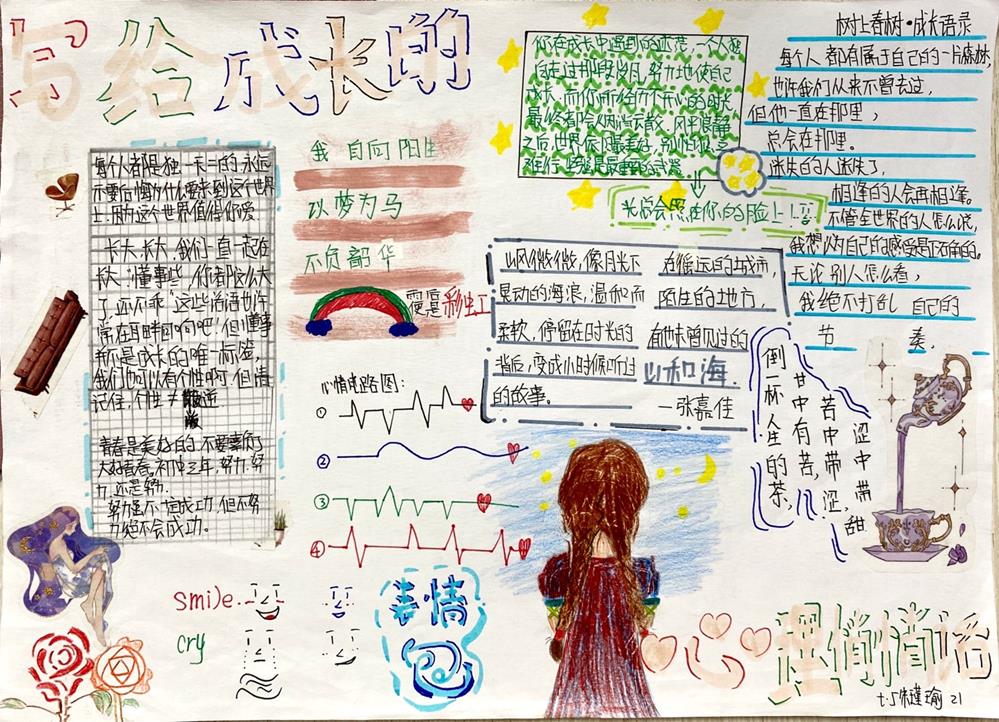 写给成长的
每个人都是独一无二的,永远
不要后悔为什么要来到这个世界
上.因为这个世界值得你爱.
长大,长大,我们一直一起在
长大."懂事些,你都那么大
了,还不乖"这些俗语也许
常在耳畔回响吧,但懂事
却不是成长的唯一标签,
我们可以有个性啊,但请
记住,个性≠叛逆
青春是美好的.不要辜负了
大好青春.初中三年,努力,努
力,还是努力.
努力虽不一定成功,但不努
力绝不会成功.
我自向阳生
以梦为马
不负韶华
雨后
便是
彩虹
心情电路图:
①
②
③
④
smile
cry
表情
包
你在成长中遇到的迷茫,一个人独
自走过那段岁月,努力地使自己
最终都会人两消云散,风平浪静
之后,世界依旧最美好,别怕艰
难行,坚强是最重要的武器
光总会照在你的脸上!
山风微微,像月光下
晃动的海浪,温和而
柔软,停留在时光的
背后,变成小时候听过
的故事。
在遥远的城市,
陌生的地方,
有他未曾见过的
山和海.
—张嘉佳
树上春树·成长语录
每个人都有属于自己的一片森林,
也许我们从来不曾去过,
但他一直在那里,
总会在那里.
迷失的人迷失了,
相逢的人会再相逢.
不管全世界的人怎么说,
我想为自己的感受是正确的.
无论别人怎么看,
我绝不打乱自己的
节奏.
倒一杯人生的茶,
甘中有苦,
苦中带涩,
涩中带甜
心理悄悄话
七.5 朱瑾瑜 21